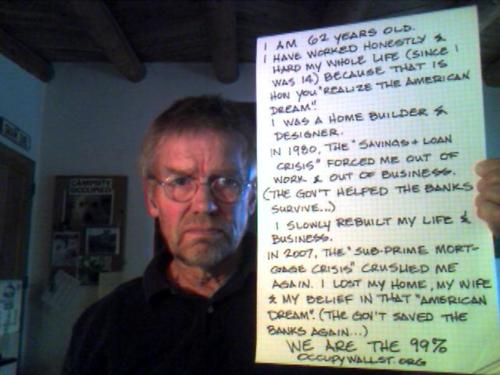 I AM 62 YEARS OLD.
I HAVE WORKED HONESTLY &
HARD MY WHOLE LIFE (SINCE I
WAS 14) BECAUSE THAT IS
HOW YOU "REALIZE THE AMERICAN
DREAM".
I WAS A HOME BUILDER &
DESIGNER.
IN 1980, THE "SAVINGS + LOAN
CRISIS" FORCED ME OUT OF
WORK & OUT OF BUSINESS.
(THE GOV'T HELPED THE BANKS
SURVIVE...)
I SLOWLY REBUILT MY LIFE &
BUSINESS.
IN 2007, THE "SUB-PRIME MORT-
GAGE CRISIS" CRUSHED ME
AGAIN. I LOST MY HOME, MY WIFE
& MY BELIEF IN THAT "AMERICAN
DREAM". (THE GOV'T SAVED THE
BANKS AGAIN...)
WE ARE THE 99%
OCCUPYWALLST.ORG
CAMPSITE
OCCUPIED